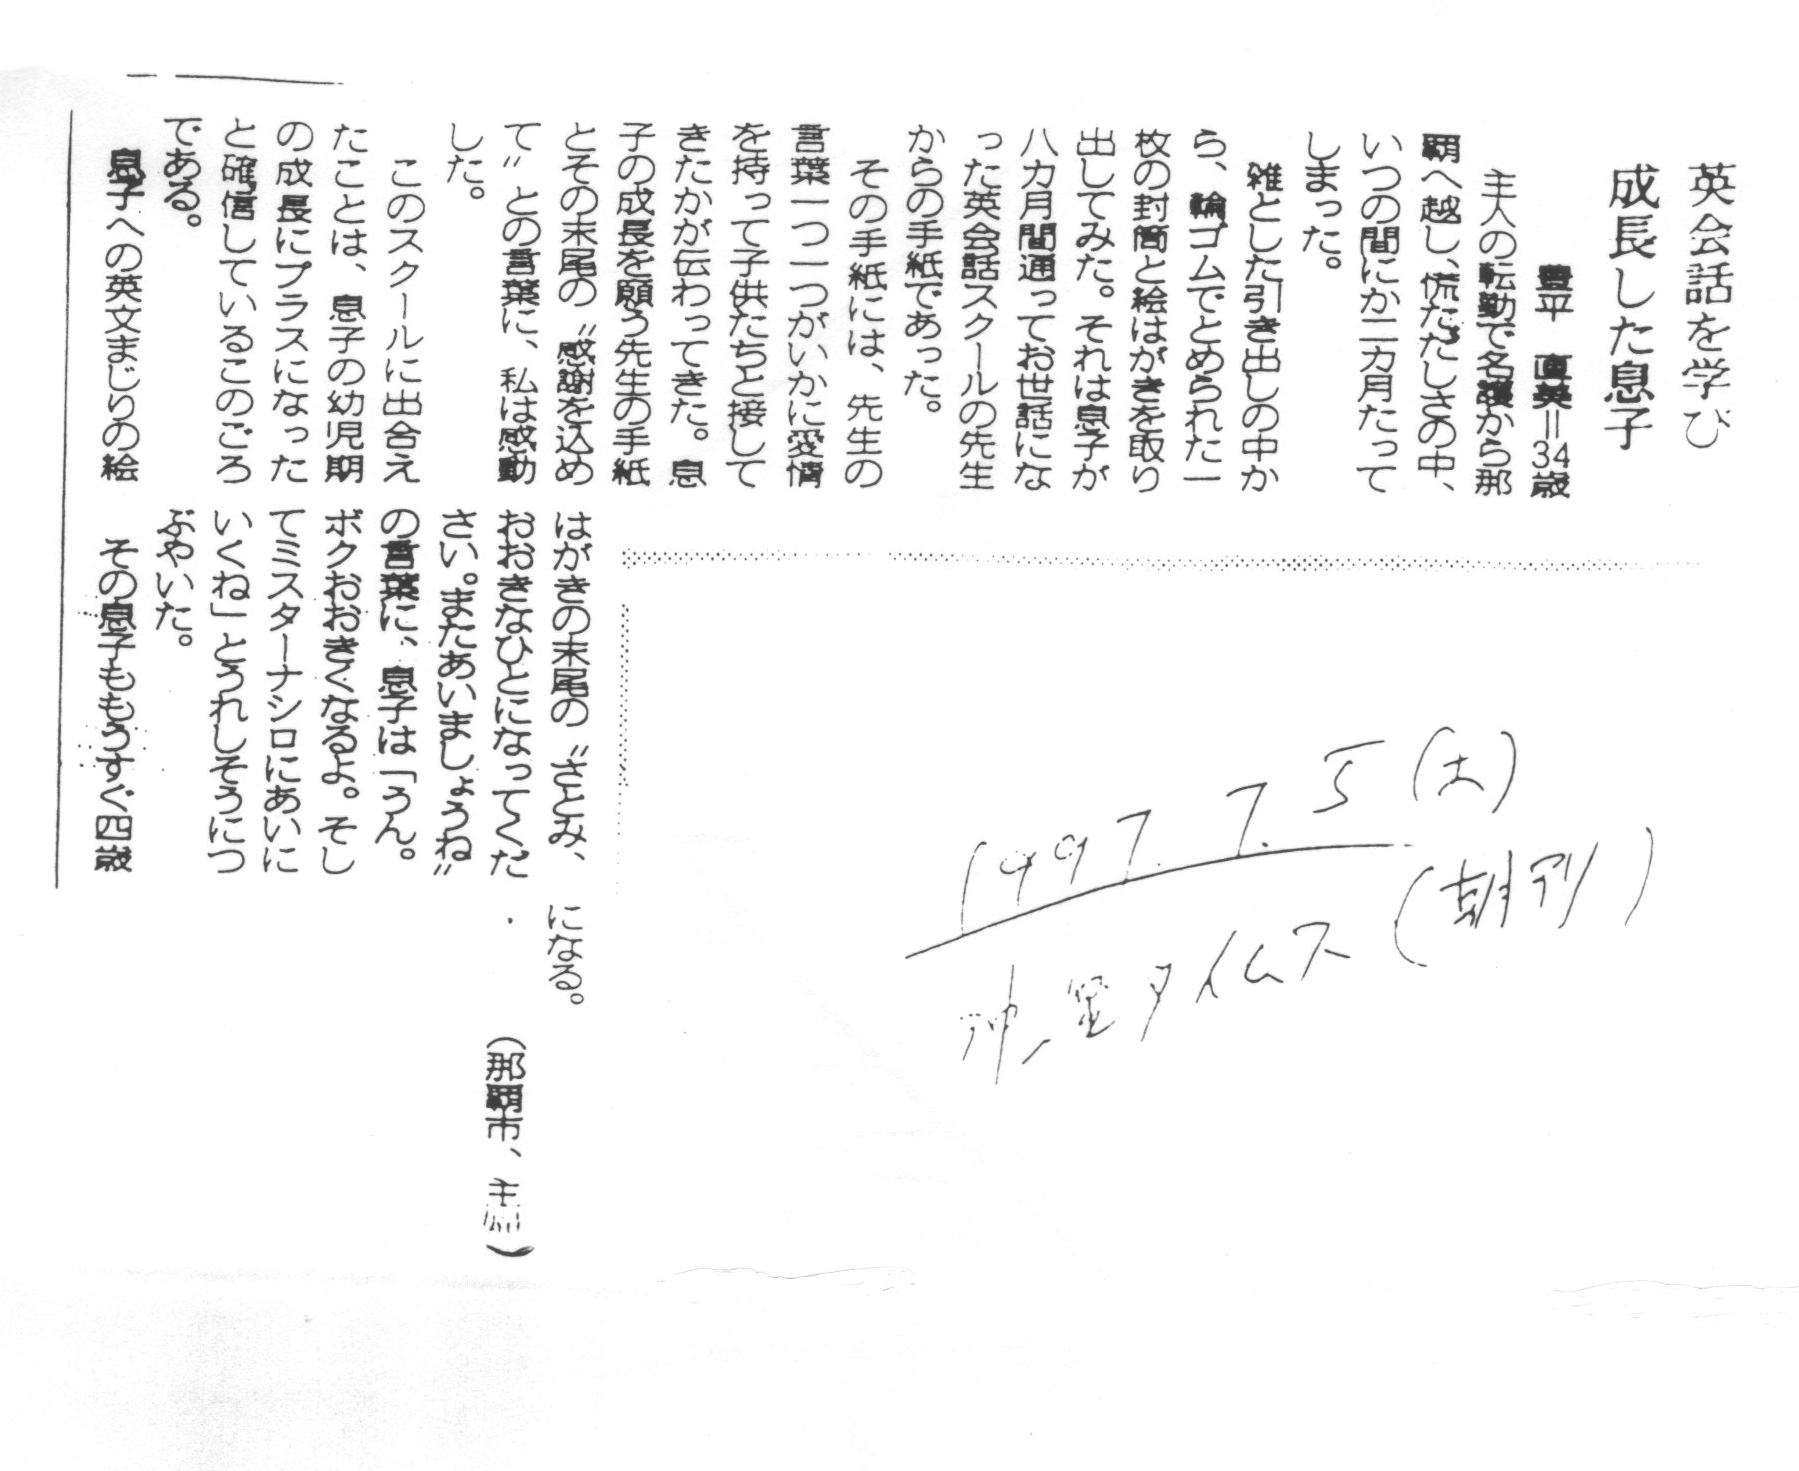 英会話を学び
成長した息子
豊平 直英＝34歳
主人の転勤で名護から那
覇へ越し、慌ただしさの中、
いつの間にか二カ月たって
しまった。
雑とした引き出しの中か
ら、輪ゴムでとめられた一
枚の封筒と絵はがきを取り
出してみた。それは息子が
八カ月間通ってお世話にな
った英会話スクールの先生
からの手紙であった。
その手紙には、先生の
言葉一つ一つがいかに愛情
を持って子供たちと接して
きたかが伝わってきた。息
子の成長を願う先生の手紙
とその末尾の〝感謝を込め
て〟との言葉に、私は感動
した。
このスクールに出合え
たことは、息子の幼児期
の成長にプラスになった
と確信しているこのごろ
である。
息子への英文まじりの絵
はがきの末尾の〝さとみ、
おおきなひとになってくだ
さい。またあいましょうね〟
の言葉に、息子は「うん。
ボクおおきくなるよ。そし
てミスターナシロにあいに
いくね」とうれしそうにつ
ぶやいた。
その息子ももうすぐ四歳
になる。
（那覇市、主
1997. 7. 5 (土)
沖縄タイムス (朝刊)